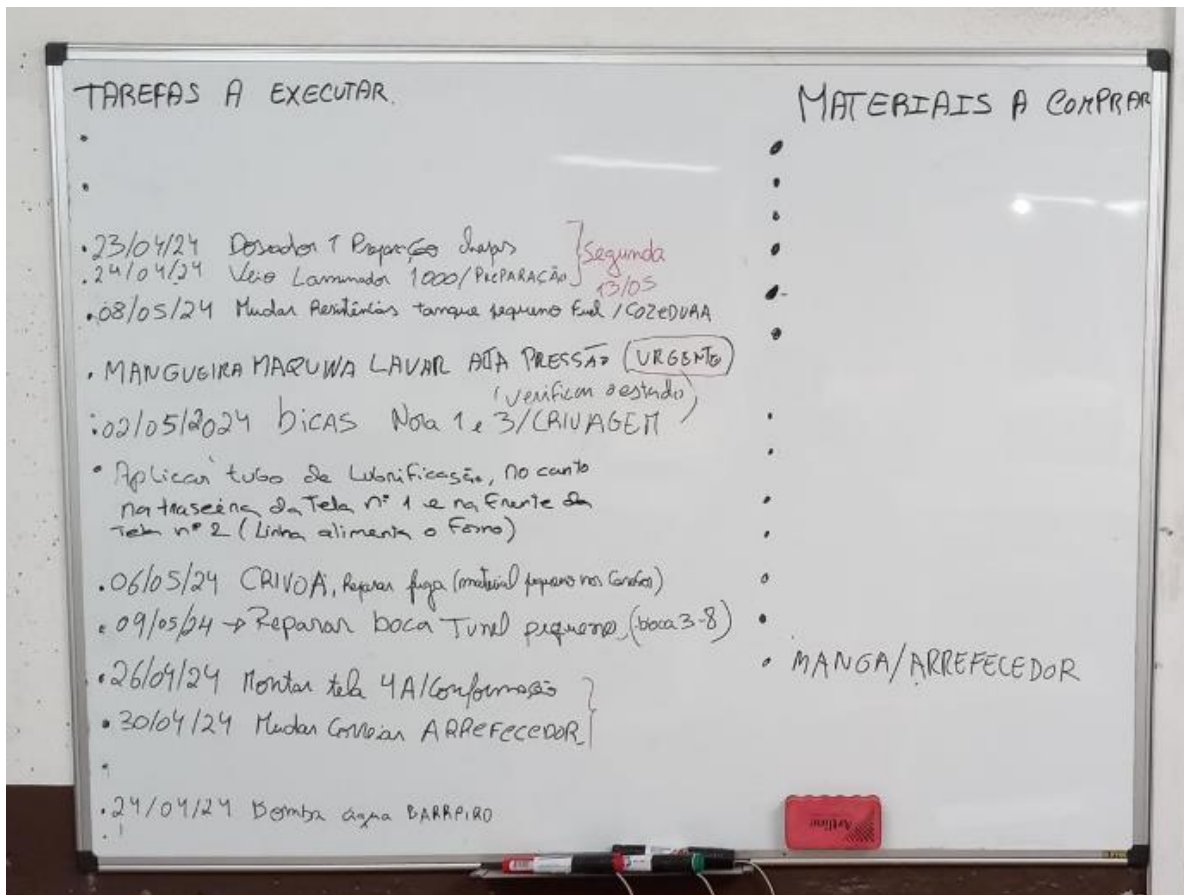 TAREFAS A EXECUTAR.
MATERIAIS A COMPRAR
• 23/04/24 Doseador 1 Preparação chapas
Segunda
• 24/04/24 Veio Laminador 1000/PREPARAÇÃO
13/05
• 08/05/24 Mudar Resistências tanque pequeno Fuel /COZEDURA
• MANGUEIRA MAQUINA LAVAR ALTA PRESSÃO (URGENTE)
(verificar o estado)
• 02/05/2024 bicas Nora 1 e 3/CRIVAGEM
• Aplicar tubo de Lubrificação, no canto
na traseira da Tela nº 1 e na Frente da
Tela nº 2 (Linha alimenta o Forno)
• 06/05/24 CRIVO A, Reparar fuga (material pequeno nos )
• 09/05/24 → Reparar boca Tunel pequeno, (boca 3-8)
• MANGA/ARREFECEDOR
• 26/04/24 Montar tela 4A/Conformação
• 30/04/24 Mudar Correias ARREFECEDOR
• 24/04/24 Bomba água BARREIRO
Artline